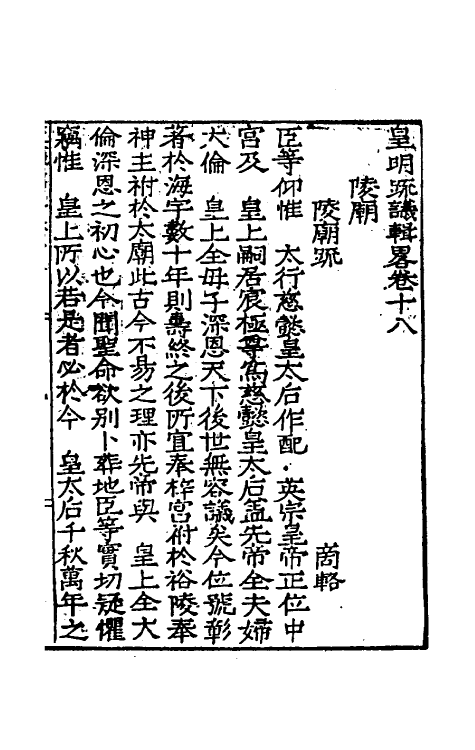 皇明疏議輯畧卷十八
陵廟
陵廟疏 商輅
臣等仰惟 太行慈懿皇太后作配 英宗皇帝正位中
宮及 皇上嗣居宸極尊為慈懿皇太后葢先帝全夫婦
大倫 皇上全母子深恩天下後世無容議矣今位號彰
著於海宇數十年則壽終之後所宜奉梓宮祔於裕陵奉
神主祔於太廟此古今不易之理亦先帝與 皇上全大
倫深恩之初心也今聞聖命欲别卜葬地臣等實切疑懼
竊惟 皇上所以若是者必於今 皇太后千秋萬年之